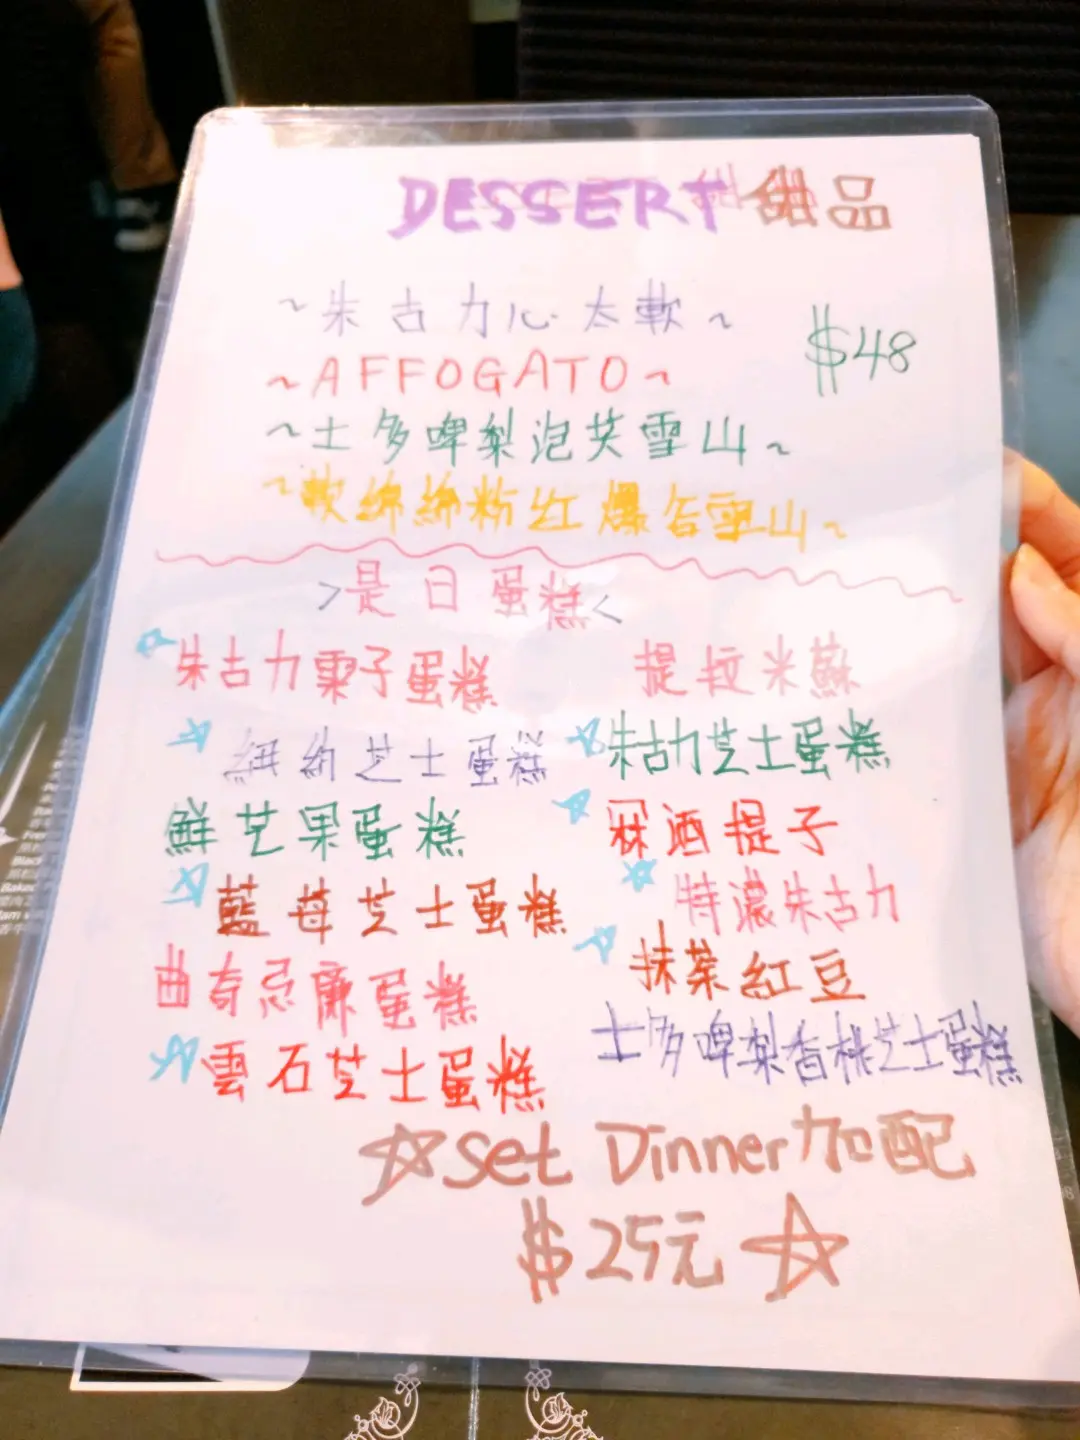 DESSERT 甜品
~朱古力心太軟~
$48
~AFFOGATO~
~士多啤梨泡芙雪山~
~軟綿綿粉紅爆谷雪山~
>是日蛋糕<
☆朱古力栗子蛋糕
提拉米蘇
☆紐約芝士蛋糕
☆朱古力芝士蛋糕
鮮芒果蛋糕
☆冧酒提子
☆藍莓芝士蛋糕
☆特濃朱古力
曲奇忌廉蛋糕
☆抹茶紅豆
☆雲石芝士蛋糕
士多啤梨香桃芝士蛋糕
☆Set Dinner加配
$25元☆